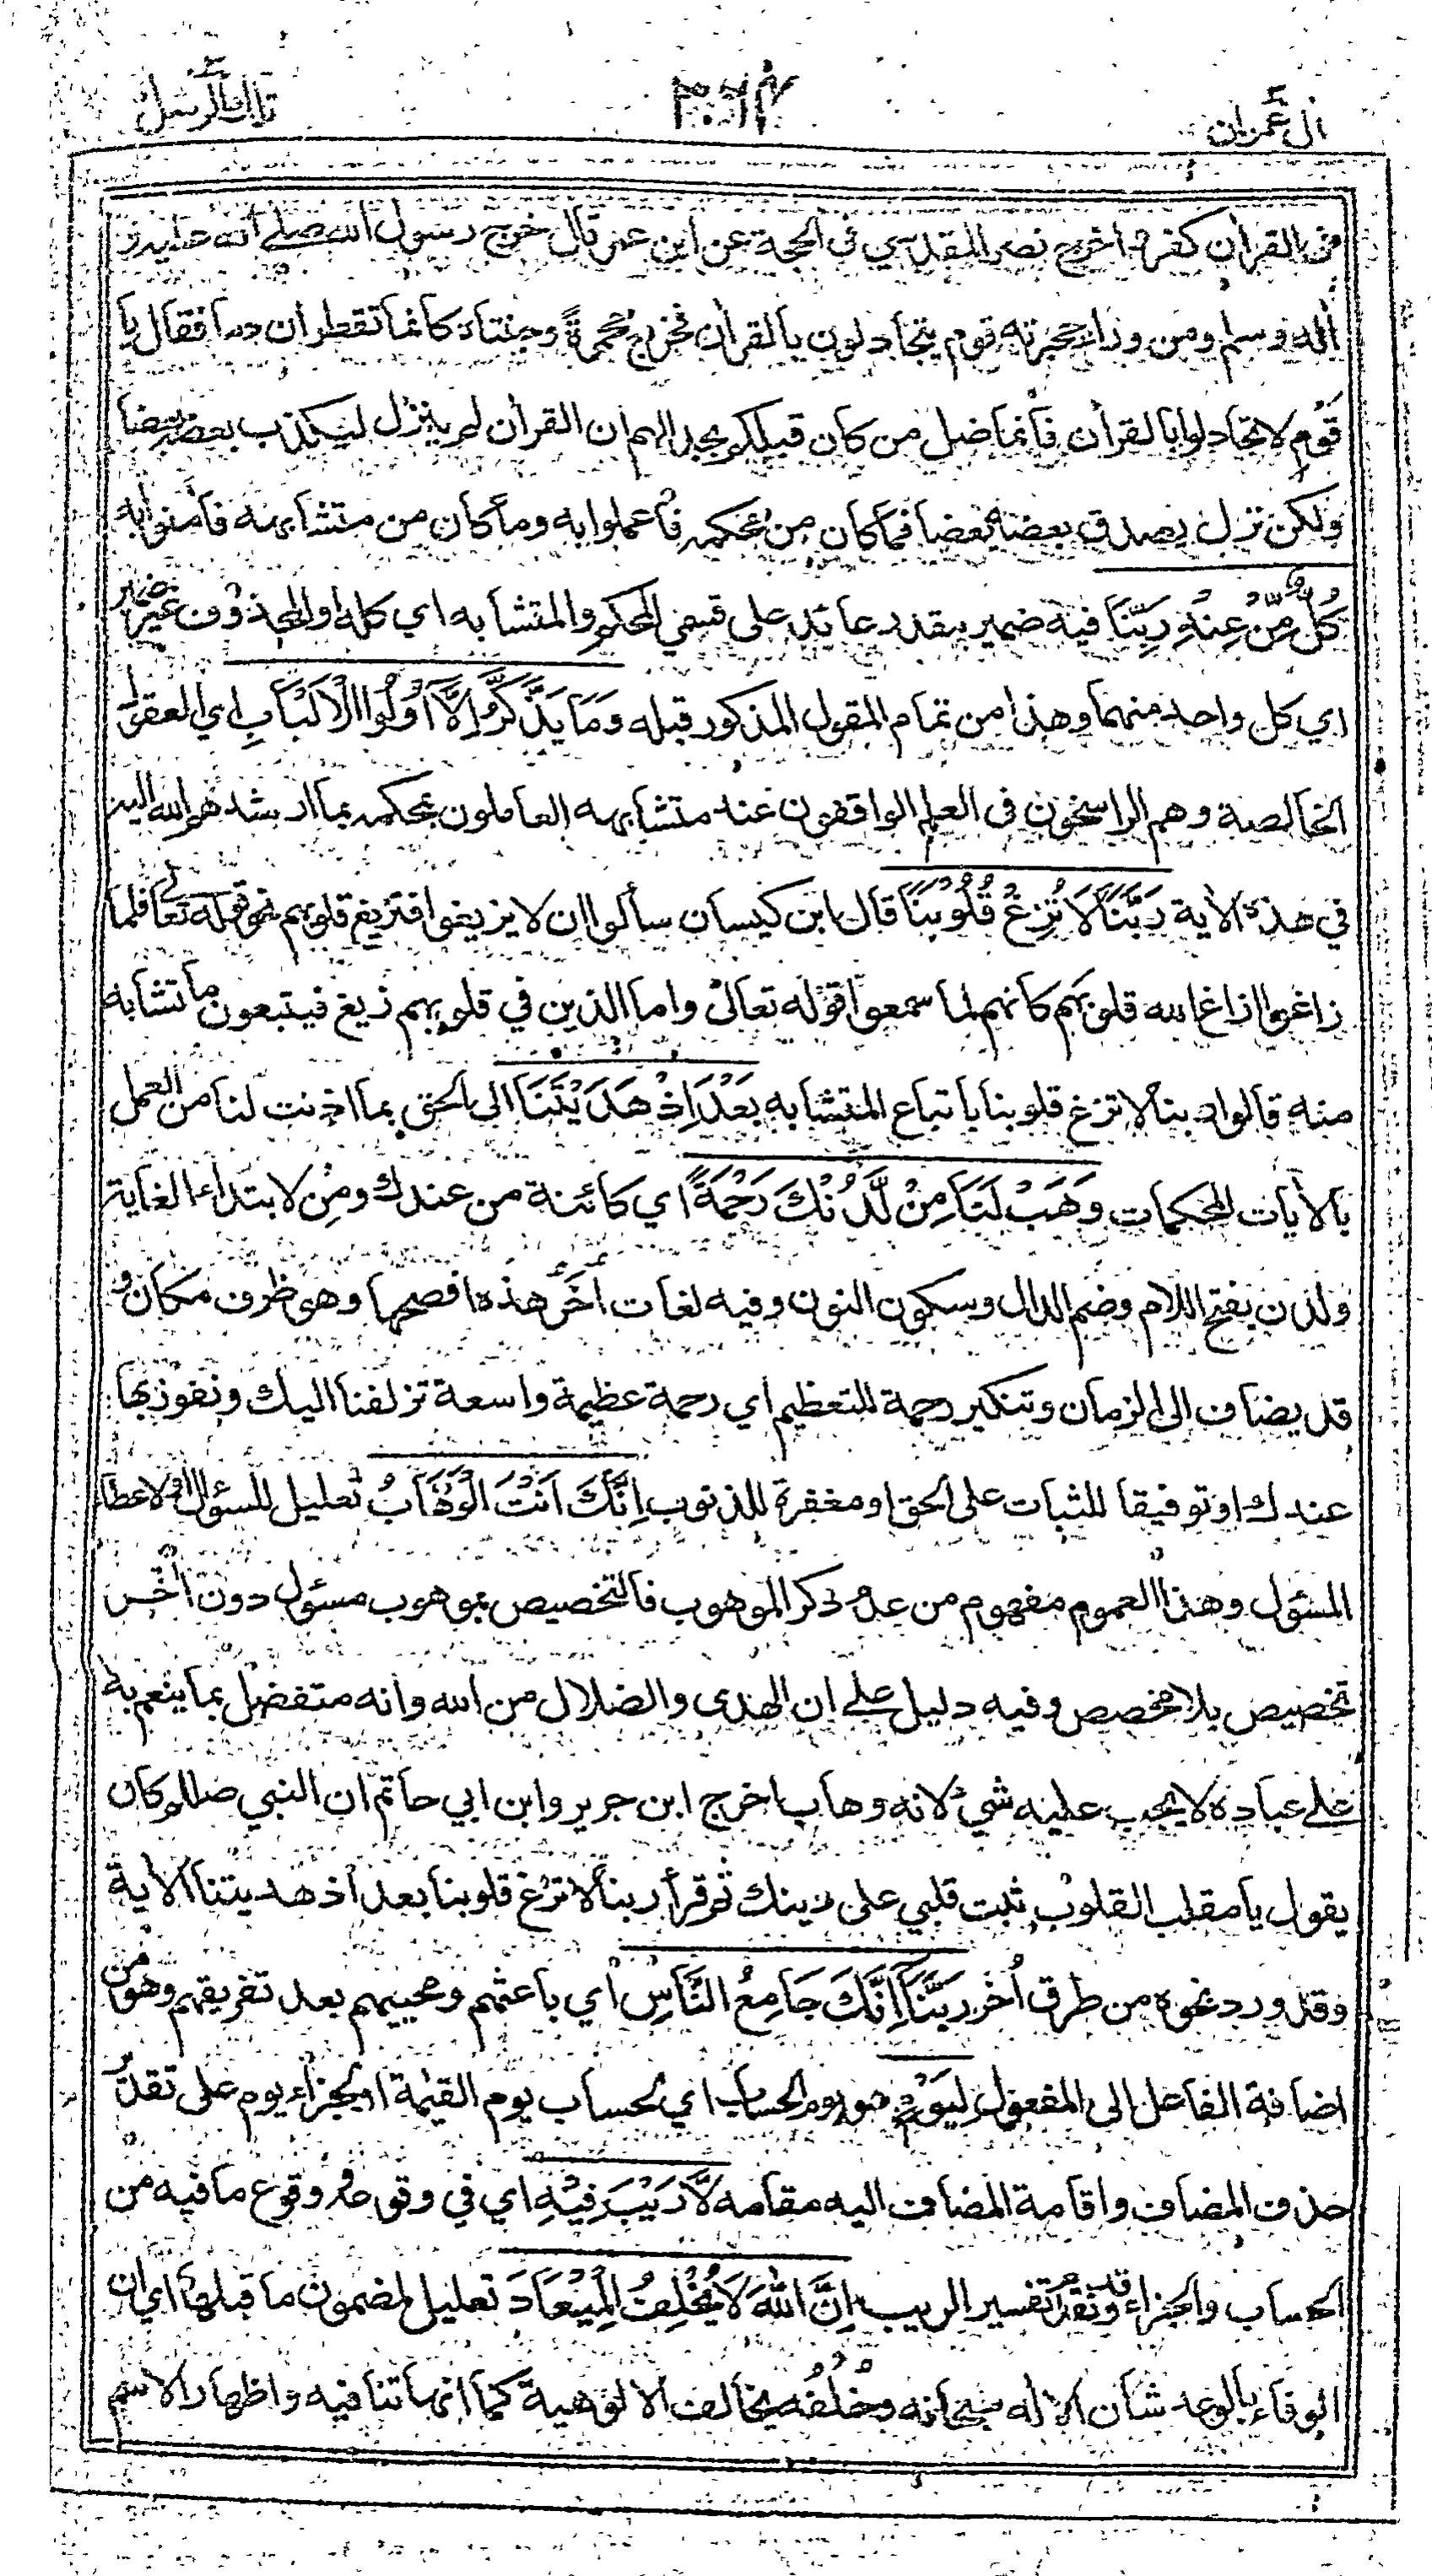 آل عمران
٣٠٦٢
تلك الرسل
في القرآن كفر واخرج نصر المقدسي في الحجة عن ابن عمر قال خرج رسول الله صلى الله عليه و
اله وسلم ومن وراء حجرته قوم يتجادلون بالقرآن فخرج محمرة وجنتاه كانما تقطران دما فقال يا
قوم لا تجادلوا بالقرآن فانما ضل من كان قبلكم بجدالهم ان القرآن لم ينزل ليكذب بعضه بعضا
ولكن نزل يصدق بعضه بعضا فما كان من محكمه فاعملوا به وما كان من متشابهه فآمنوا به
كُلٌّ مِّنْ عِنْدِ رَبِّنَا فيه ضمير مقدر عائد على قسمي المحكم والمتشابه اي كله او المحذوف غير ضمير
اي كل واحد منهما وهذا من تمام المقول المذكور قبله وَمَا يَذَّكَّرُ إِلَّا أُولُوا الْأَلْبَابِ اي العقول
الخالصة وهم الراسخون في العلم الواقفون عند متشابهه العاملون بمحكمه بما ارشدهم الله اليه
في هذه الآية رَبَّنَا لَا تُزِغْ قُلُوبَنَا قال ابن كيسان سألوا ان لا يزيغوا فتزيغ قلوبهم نحو قوله تعالى فلما
زاغوا ازاغ الله قلوبهم كانهم لما سمعوا قوله تعالى واما الذين في قلوبهم زيغ فيتبعون ما تشابه
منه قالوا ربنا لا تزغ قلوبنا باتباع المتشابه بَعْدَ إِذْ هَدَيْتَنَا الى الحق بما اذنت لنا من العمل
بالآيات المحكمات وَهَبْ لَنَا مِنْ لَّدُنْكَ رَحْمَةً اي كائنة من عندك ومن لابتداء الغاية
ولدن بفتح اللام وضم الدال وسكون النون وفيه لغات أخر هذه افصحها وهو ظرف مكان و
قد يضاف الى الزمان وتنكير رحمة للتعظيم اي رحمة عظيمة واسعة تزلفنا اليك ونفوز بها
عندك او توفيقا للثبات على الحق او مغفرة للذنوب إِنَّكَ أَنْتَ الْوَهَّابُ تعليل للسؤال او لاعطاء
المسئول وهذا العموم مفهوم من عدم ذكر الموهوب فالتخصيص بموهوب مسئول دون آخر
تخصيص بلا مخصص وفيه دليل على ان الهدى والضلال من الله وانه متفضل بما ينعم به
على عباده لا يجب عليه شيء لانه وهاب اخرج ابن جرير وابن ابي حاتم ان النبي صللم كان
يقول يا مقلب القلوب ثبت قلبي على دينك ثم قرأ ربنا لا تزغ قلوبنا بعد اذ هديتنا الآية
وقد ورد نحوه من طرق أخر رَبَّنَا إِنَّكَ جَامِعُ النَّاسِ اي باعثهم ومحييهم بعد تفريقهم وهو من
اضافة الفاعل الى المفعول لِيَوْمٍ هو يوم الحساب اي لحساب يوم القيمة او لجزاء يوم على تقدير
حذف المضاف واقامة المضاف اليه مقامه لَّا رَيْبَ فِيهِ اي في وقوعه ووقوع ما فيه من
الحساب والجزاء وقد تقدم تفسير الريب إِنَّ اللَّهَ لَا يُخْلِفُ الْمِيْعَادَ تعليل لمضمون ما قبلها اي ان
الوفاء بالوعد شأن الاله سبحانه وخلفه يخالف الالوهية كما انها تنافيه واظهار الاسم